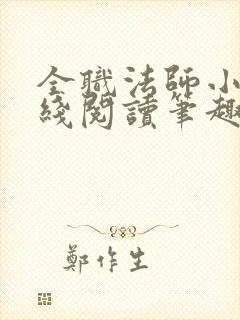 全職法師小
綫閱讀筆趣
鄭作生